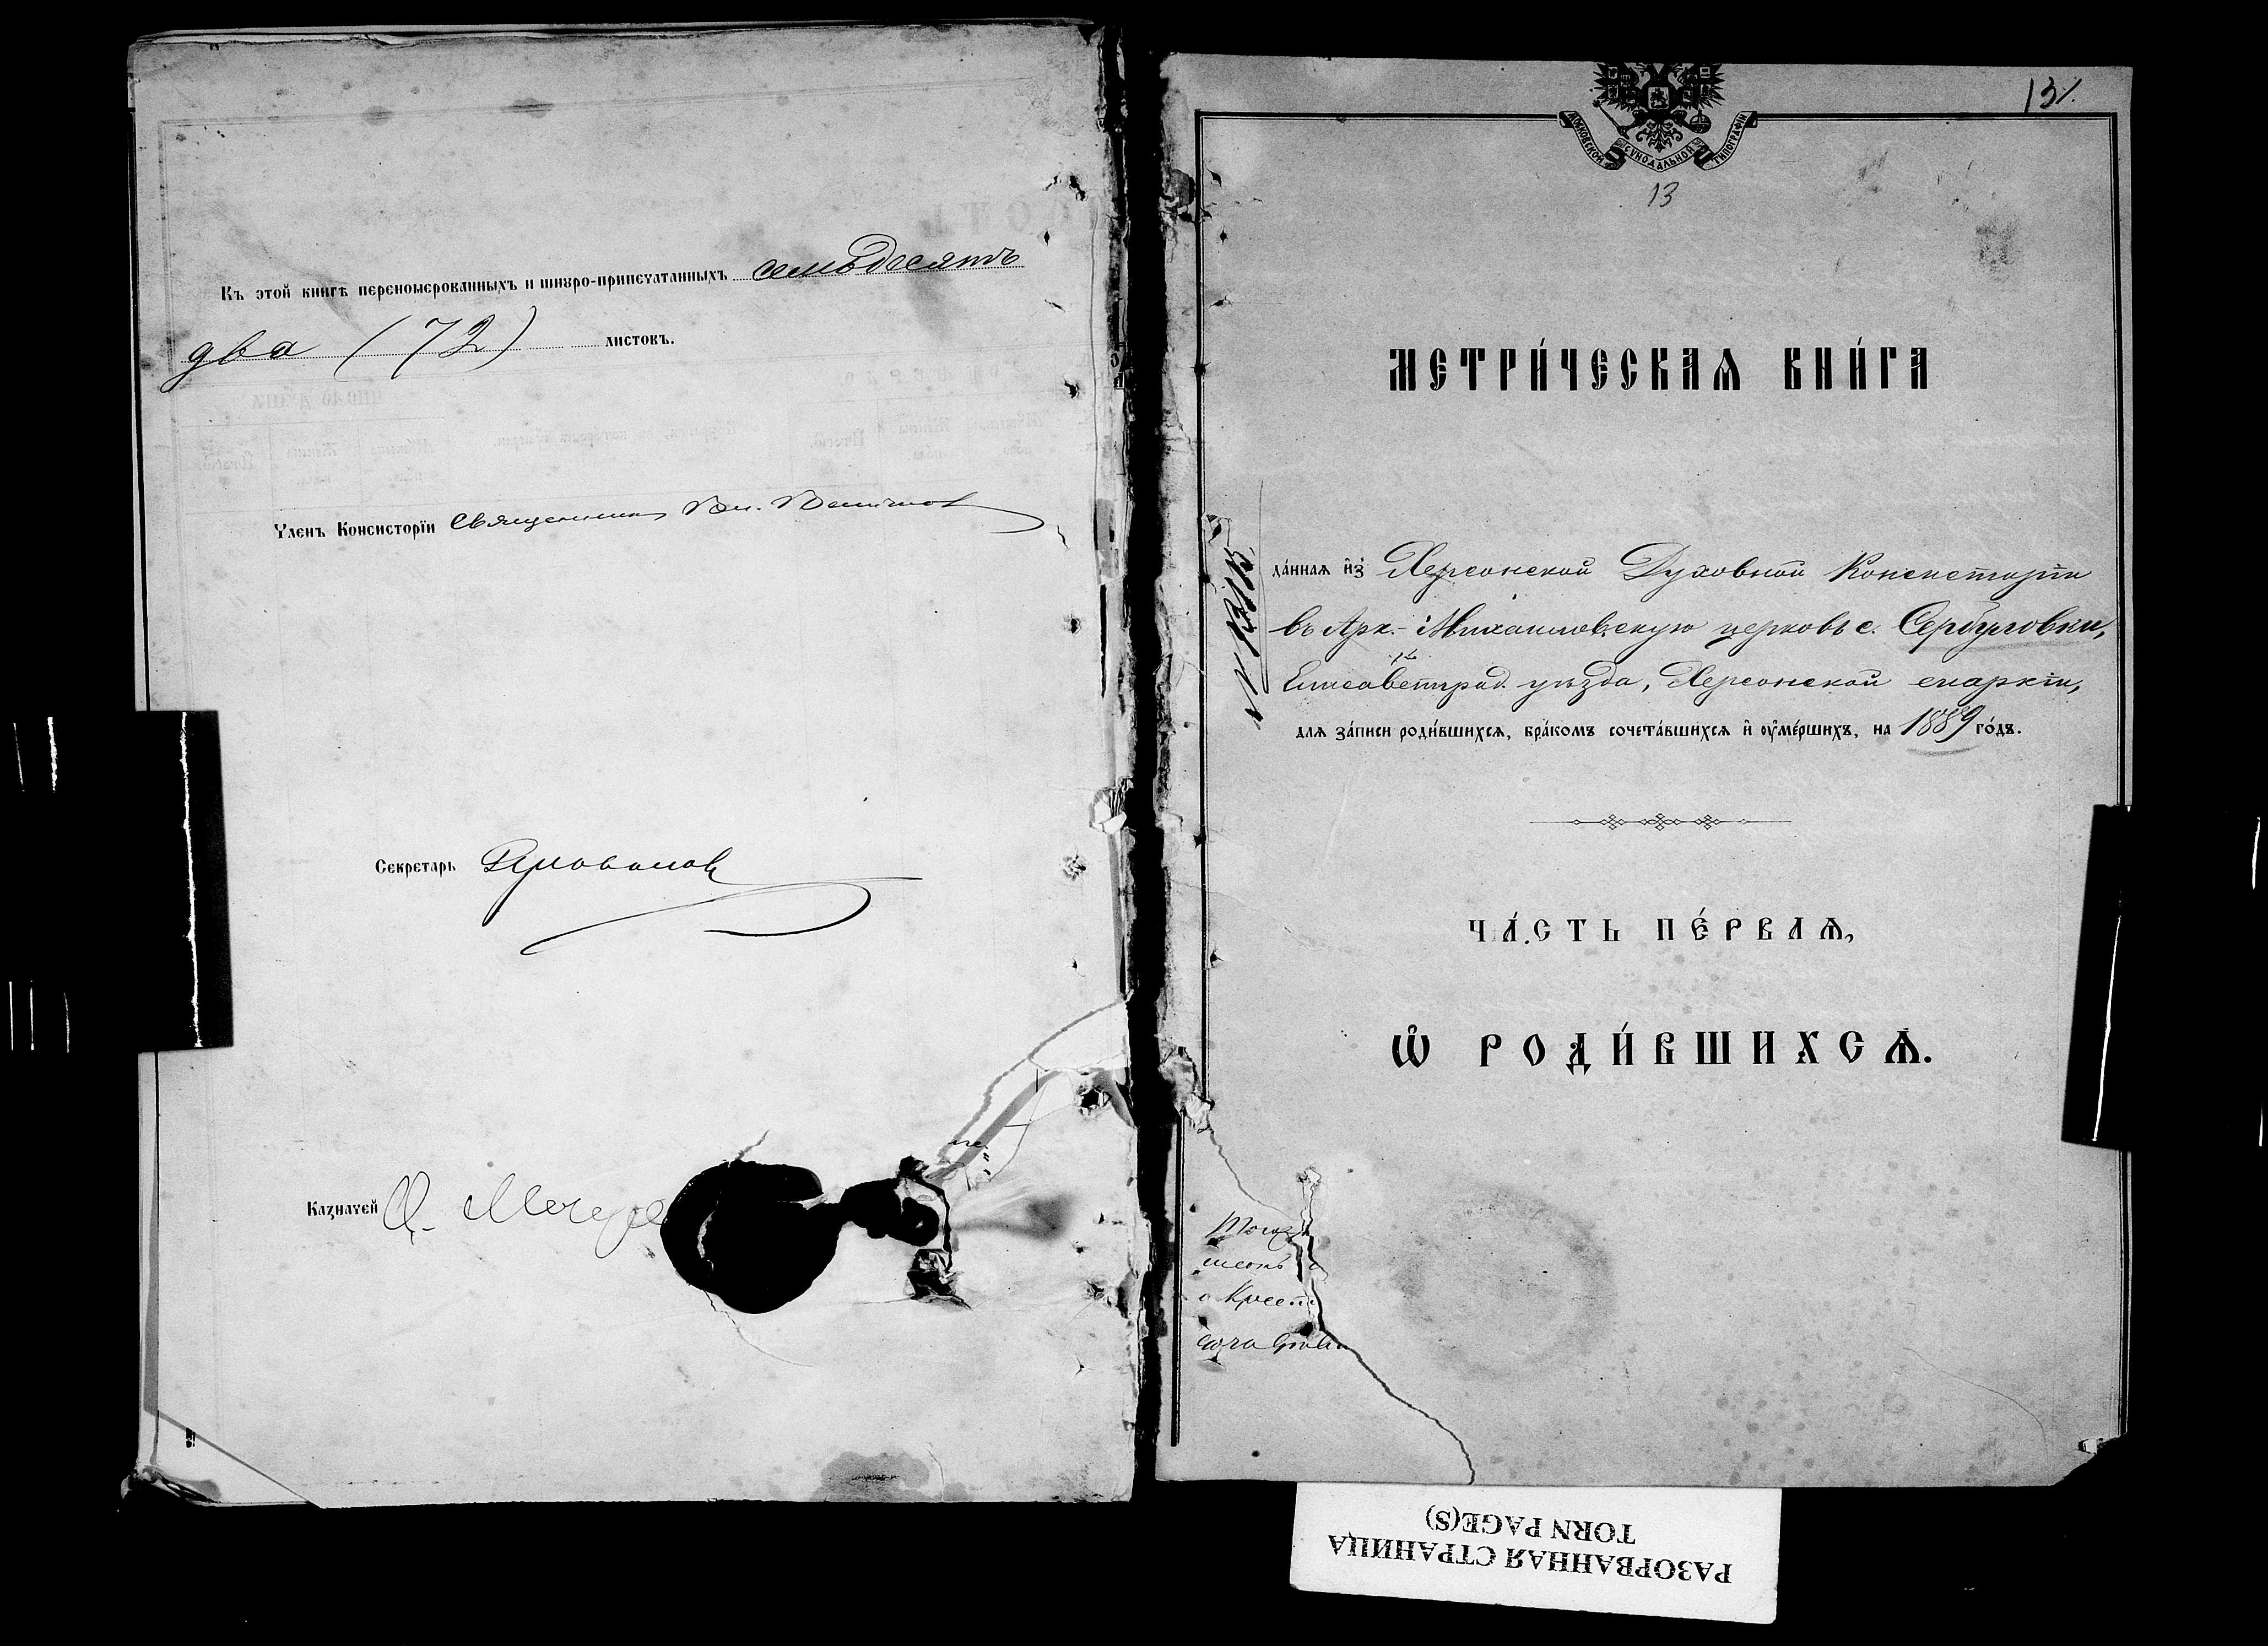 Къ этой книгѣ перономерованныхъ и шнуро-припечатанныхъ семьдесятъ
два (72) листовъ.
Членъ Консисторіи Священникъ Вл.
Секретарь
Казначей
131.
МОСКОВСКОЙ СѴНОДАЛЬНОЙ ТИПОГРАФІИ
13
МЕТРИ́ЧЕСКАѦ КНИ́ГА
да́ннаѧ и҆з̾ Херсонской Духовной Консисторіи
въ Арх.-Михайловскую церковь с. Сербуловки,
Елисаветград. уѣзда, Херсонской епархіи,
длѧ за́писи роди́вшихсѧ, бра́комъ сочета́вшихсѧ и҆ ᲂу҆ме́ршихъ, на 1889 го́дъ.
ЧА́СТЬ ПЕ́РВАѦ,
Ѡ҆ РОДИ́ВШИХСѦ.
РАЗОРВАННАЯ СТРАНИЦА
TORN PAGE(S)